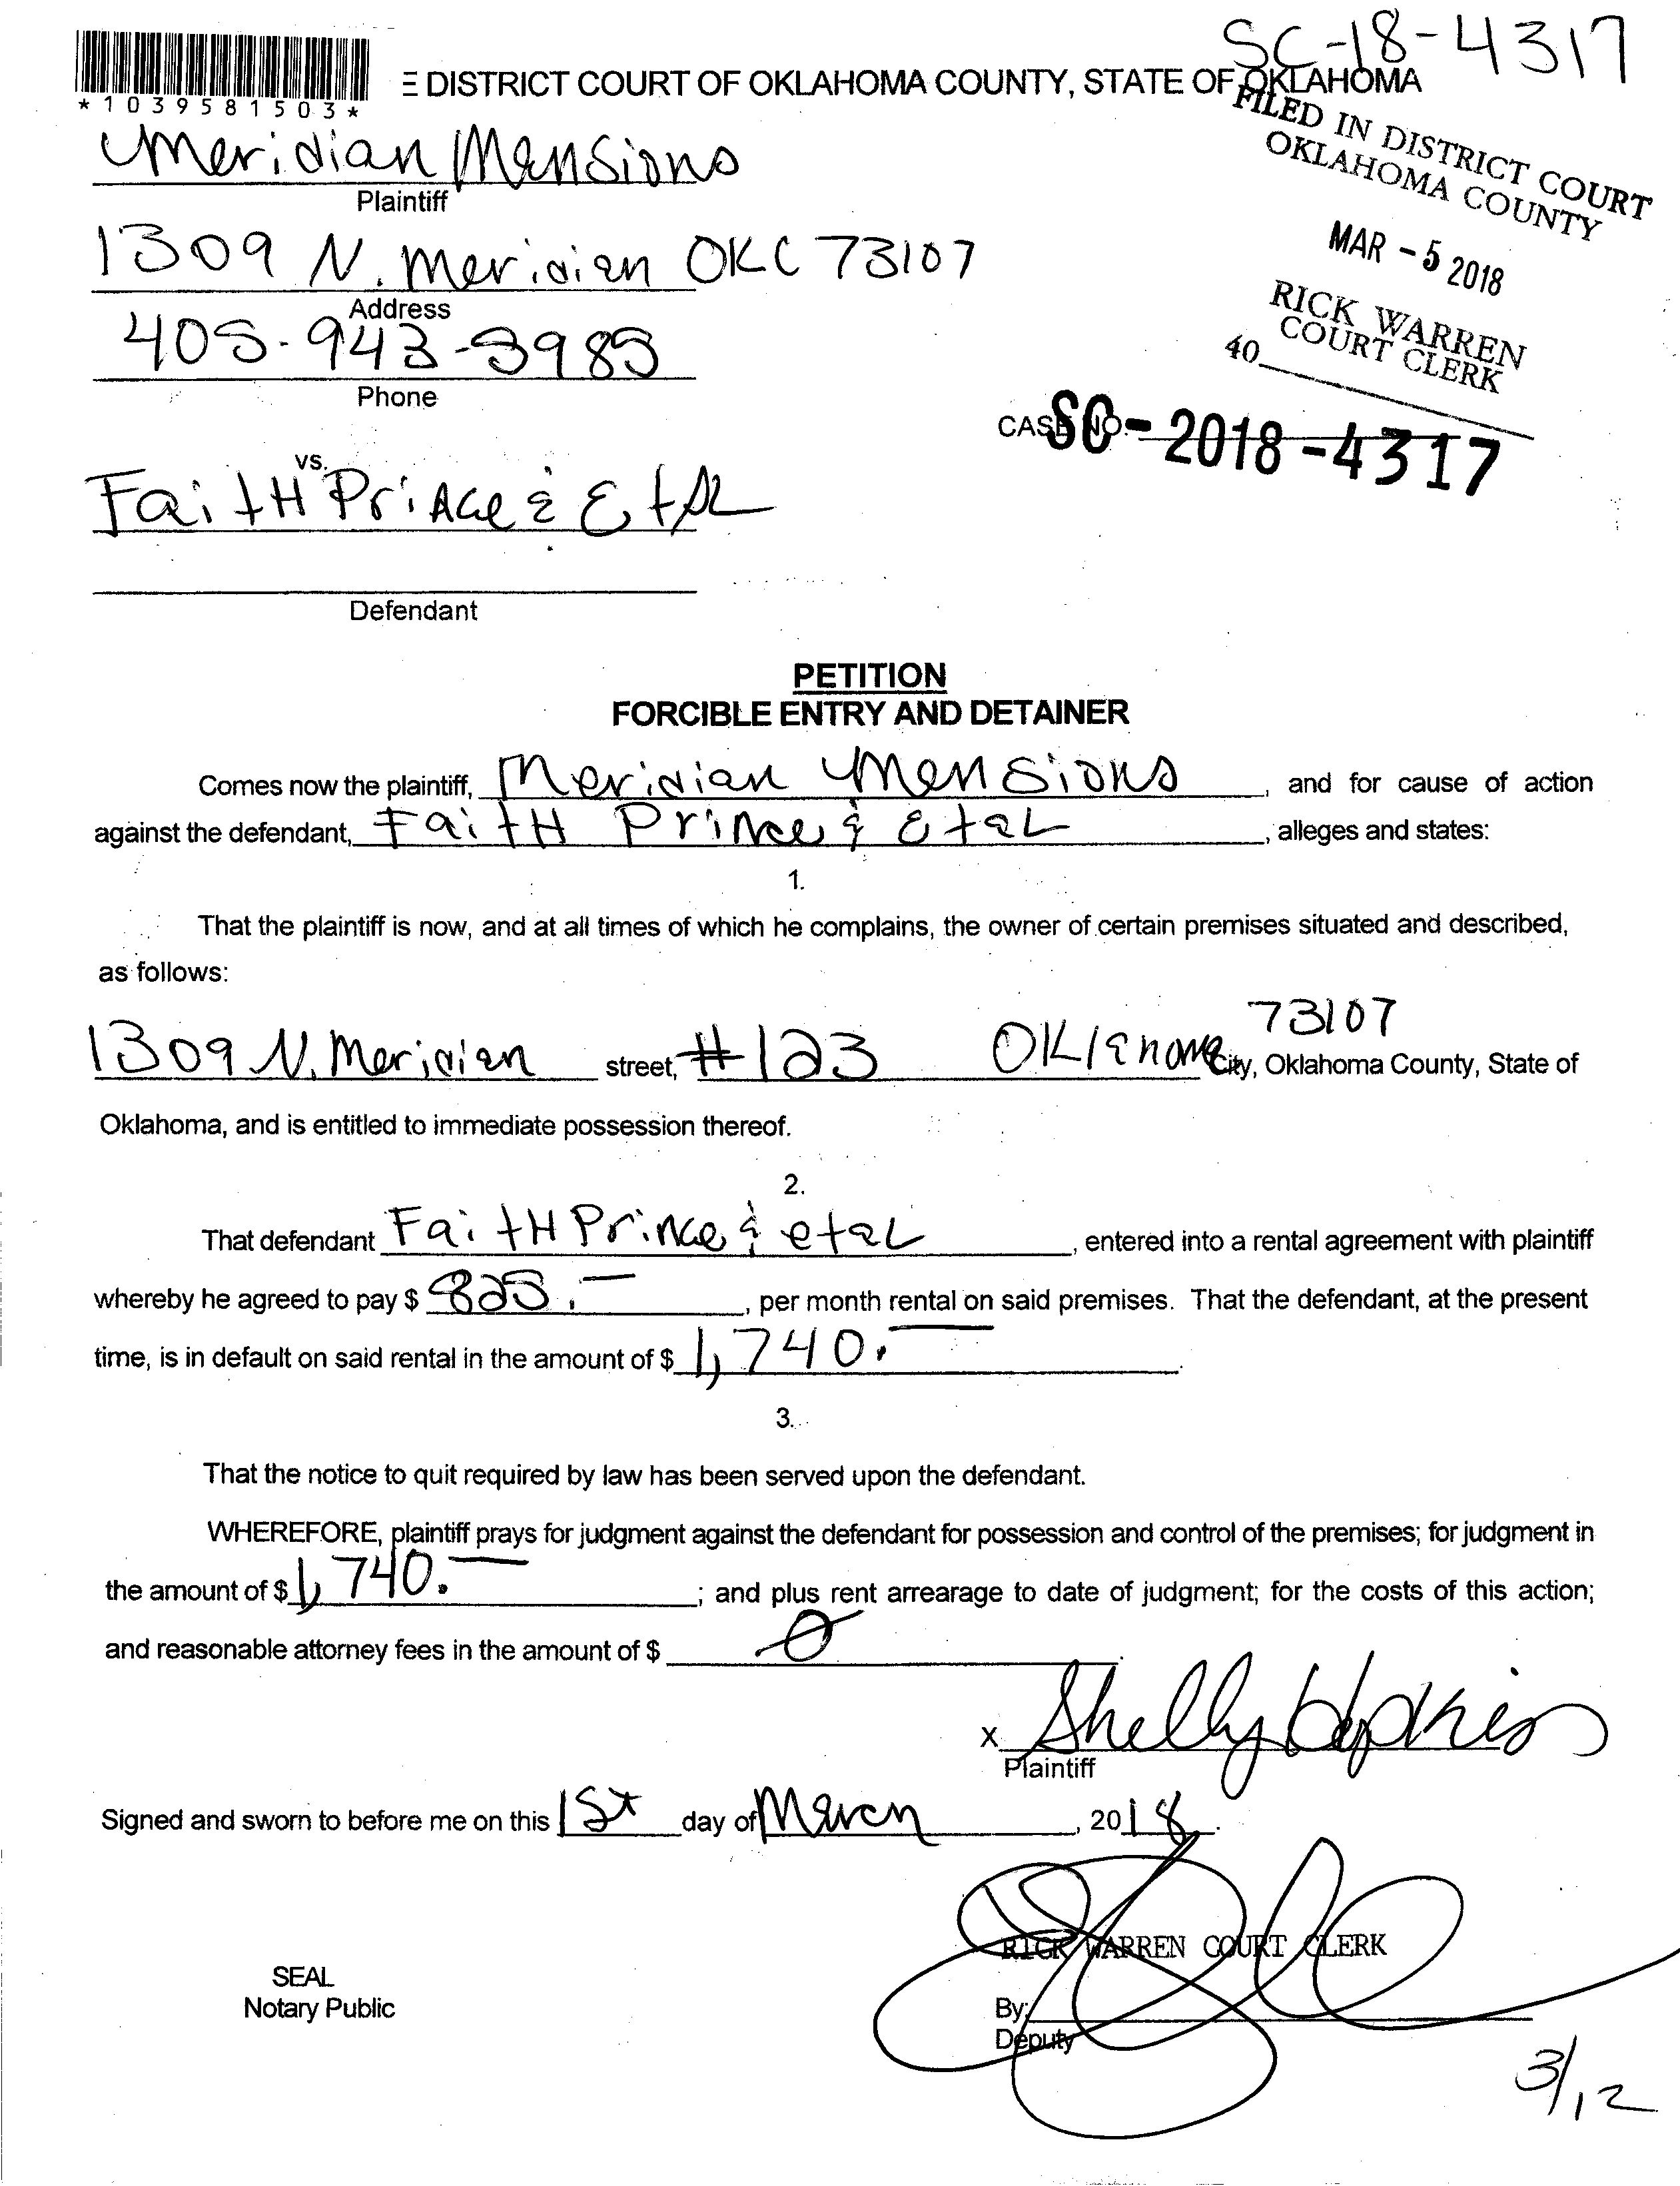 SC-18-4317
*1039581503*
E DISTRICT COURT OF OKLAHOMA COUNTY, STATE OF OKLAHOMA
FILED IN DISTRICT COURT
OKLAHOMA COUNTY
MAR - 5 2018
RICK WARREN
COURT CLERK
40
Meridian Mansions
Plaintiff
1309 N. Meridian OKC 73107
Address
405-943-3985
Phone
CASE NO. SC-2018-4317
vs.
FaitH Prince & EtAL
Defendant
PETITION
FORCIBLE ENTRY AND DETAINER
Comes now the plaintiff, Meridian Mansions, and for cause of action
against the defendant, FaitH Prince & EtaL, alleges and states:
1.
That the plaintiff is now, and at all times of which he complains, the owner of certain premises situated and described,
as follows:
73107
1309 N. Meridian street, #123 Oklahoma City, Oklahoma County, State of
Oklahoma, and is entitled to immediate possession thereof.
2.
That defendant FaitH Prince & etaL, entered into a rental agreement with plaintiff
whereby he agreed to pay $ 825.—, per month rental on said premises. That the defendant, at the present
time, is in default on said rental in the amount of $ 1,740.—.
3.
That the notice to quit required by law has been served upon the defendant.
WHEREFORE, plaintiff prays for judgment against the defendant for possession and control of the premises; for judgment in
the amount of $ 1,740.—; and plus rent arrearage to date of judgment; for the costs of this action;
and reasonable attorney fees in the amount of $ 0.
X Shelly Hopkins
Plaintiff
Signed and sworn to before me on this 1st day of March, 2018.
RICK WARREN COURT CLERK
SEAL
Notary Public
By:
Deputy
3/12